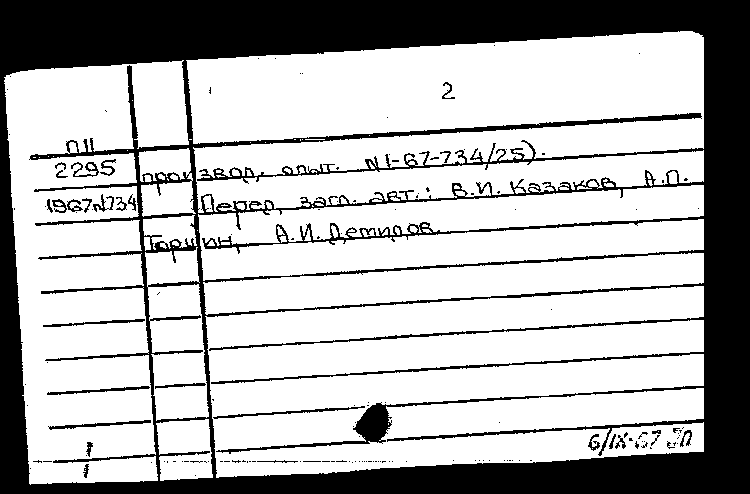 2
П11
2295 производ. опыт. N1-67-734/25).
1967N734 Перед загл. авт.: В.И. Казаков, А.П.
Торшин, А.И. Демидов.
6/IX-67